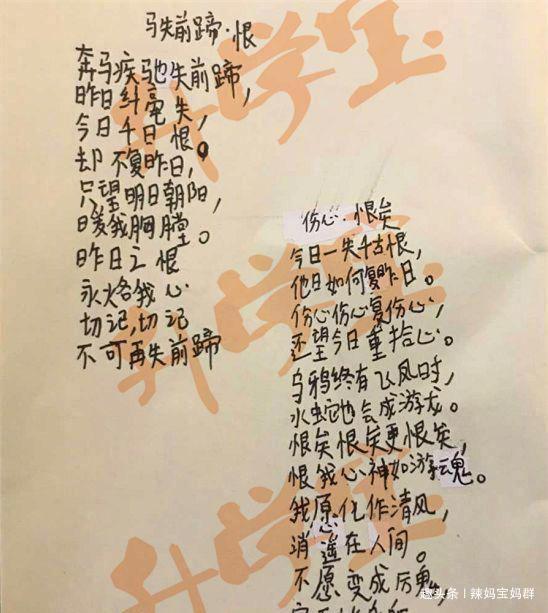 马失前蹄·恨
奔马疾驰失前蹄,
昨日纤毫失,
今日千日恨,
却不复昨日。
只望明日朝阳,
暖我胸膛。
昨日之恨
永烙我心
切记,切记
不可再失前蹄
伤心·恨矣
今日一失千古恨,
他日如何复昨日。
伤心伤心复伤心,
还望今日重拾心。
乌鸦终有飞凤时,
水蛇也会成游龙。
恨矣恨矣更恨矣,
恨我心神如游魂。
我愿化作清风,
消遥在人间。
不愿变成厉鬼,
升学宝
升学宝
升学宝
趣头条 | 辣妈宝妈群